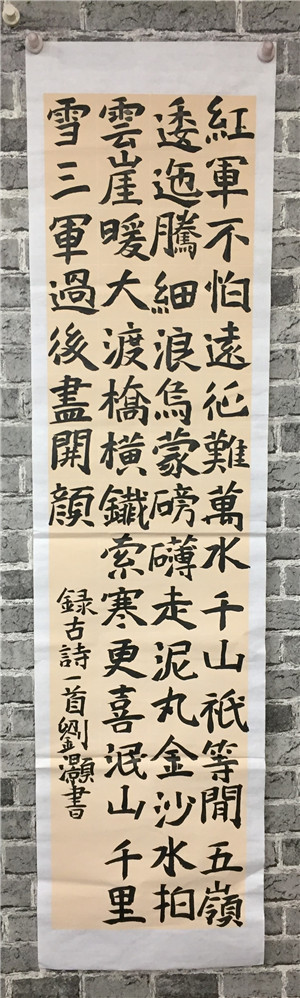 紅軍不怕遠征難萬水千山祇等閒五嶺
逶迤騰細浪烏蒙磅礴走泥丸金沙水拍
雲崖暖大渡橋橫鐵索寒更喜泯山千里
雪三軍過後盡開顔
録古詩一首劉灝書